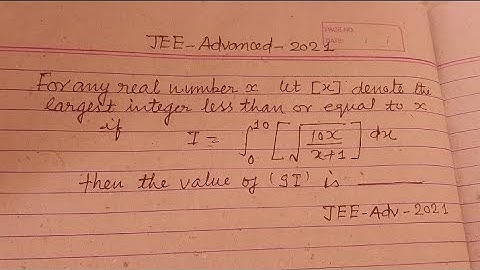 JEE-Advanced-2021
PAGE NO.
DATE: / /
For any real number x let [x] denote the
largest integer less than or equal to x
if
I = ∫₀¹⁰ [√(10x/(x+1))] dx
then the value of (9I) is ______
JEE-Adv-2021